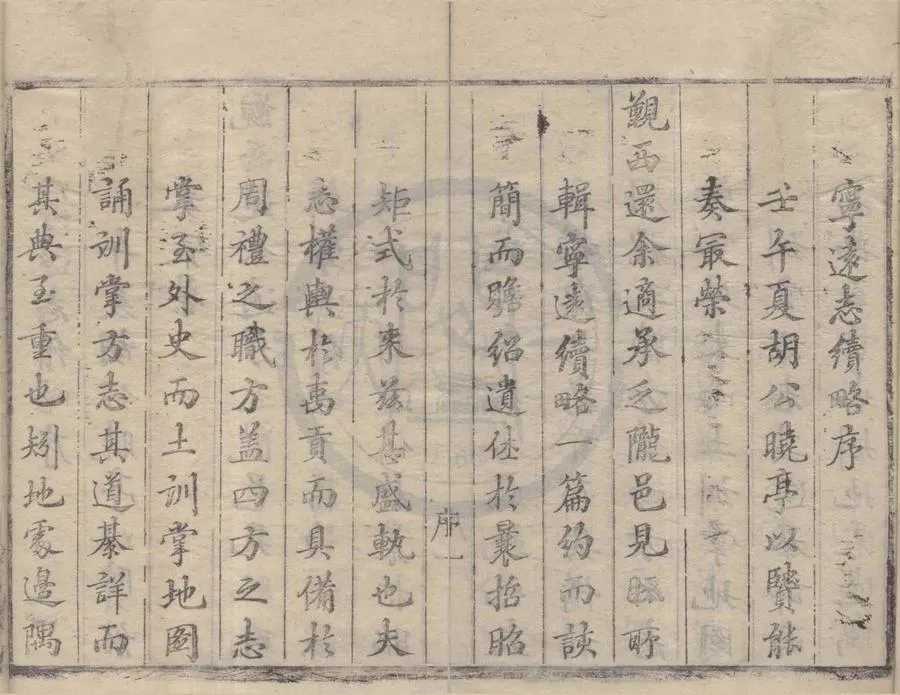 寧遠志續略序
壬午夏胡公曉亭以賢能
奏冣榮
覲西還余適承乏隴邑見眎所
輯寧遠續略一篇約而該
簡而贍紹遺休於曩哲昭
序一
矩式於來兹甚盛執也夫
志權輿於禹貢而具備於
周禮之職方盖四方之志
掌至外史而土訓掌地圖
誦訓掌方志其道綦詳而
其典至重也矧地處邊隅